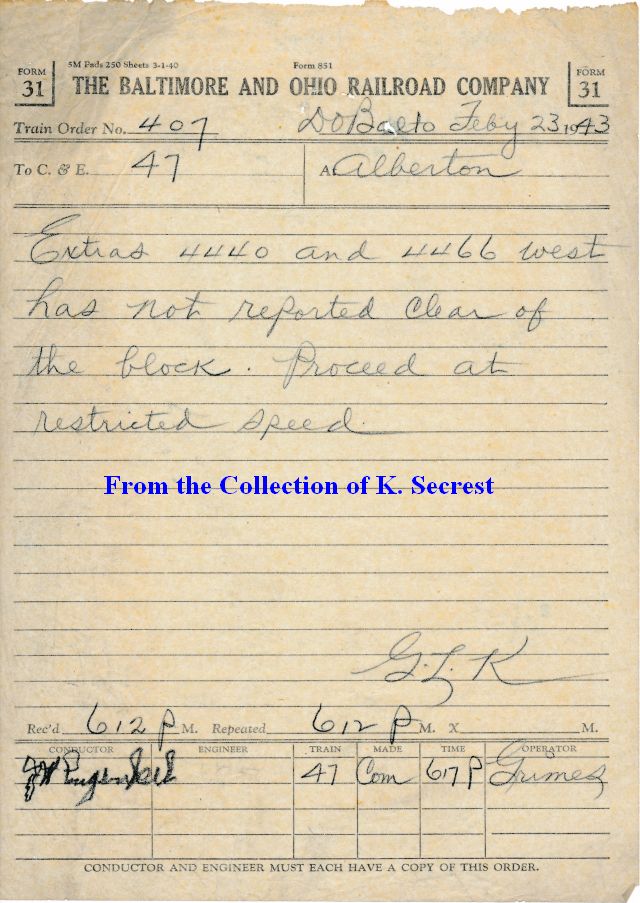 5M Pads 250 Sheets 3-1-40 Form 851
FORM 31 THE BALTIMORE AND OHIO RAILROAD COMPANY FORM 31
Train Order No. 407 DO Balto Feby 23 1943
To C. & E. 47 A Alberton
Extras 4440 and 4466 west
has not reported clear of
the block. Proceed at
restricted speed.
From the Collection of K. Secrest
G.L.K
Rec'd 612 P M. Repeated 612 P M. X M.
CONDUCTOR ENGINEER TRAIN MADE TIME OPERATOR
47 Com 617 P Grimes
CONDUCTOR AND ENGINEER MUST EACH HAVE A COPY OF THIS ORDER.